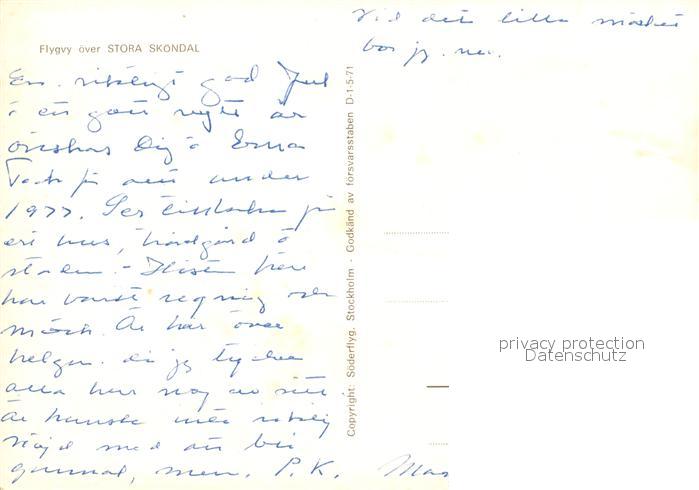 Flygvy över STORA SKÖNDAL
En riktigt god Jul
o ett gott nytt år
önskas Dig o Erna
Tack för allt under
1977. Ser tillbaka på
ert hus, trädgård o
staden. - Hösten här
har varit regnig och
mörk. Är här över
helgen. då jag tycker
alla har nog av sitt
Är kanske inte riktigt
nöjd med att bli
gammal, men. P.K.
Vid det lilla
bor jag nu.
Copyright: Söderflyg, Stockholm - Godkänd av försvarsstaben D-1-5-71
privacy protection
Datenschutz